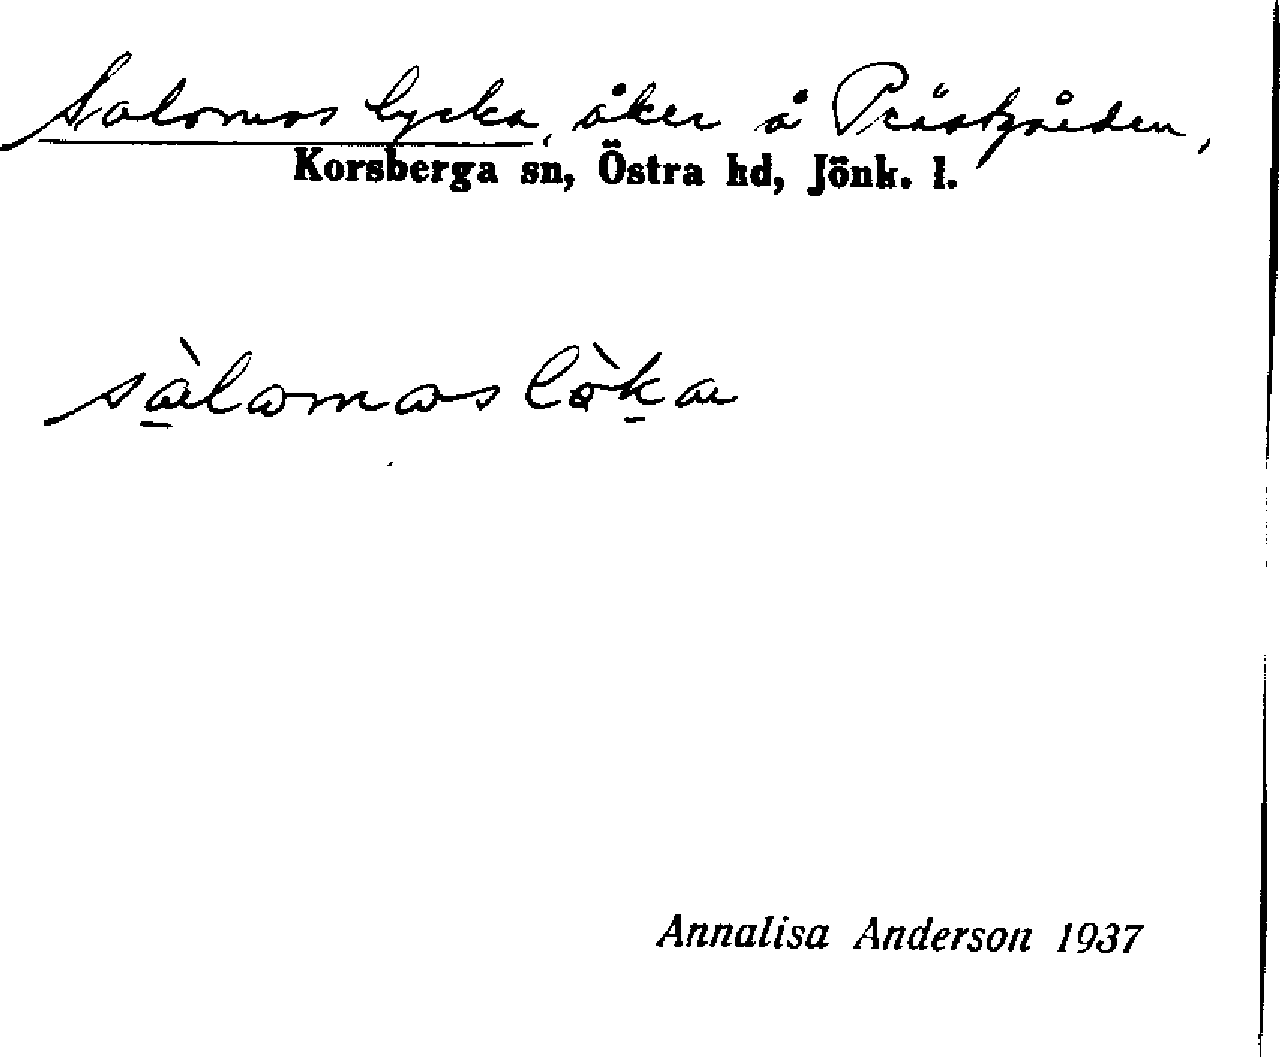 Salomos lycka, åker å Prästgården,
Korsberga sn, Östra hd, Jönk. l.
sàlomos lökа
Annalisa Anderson 1937